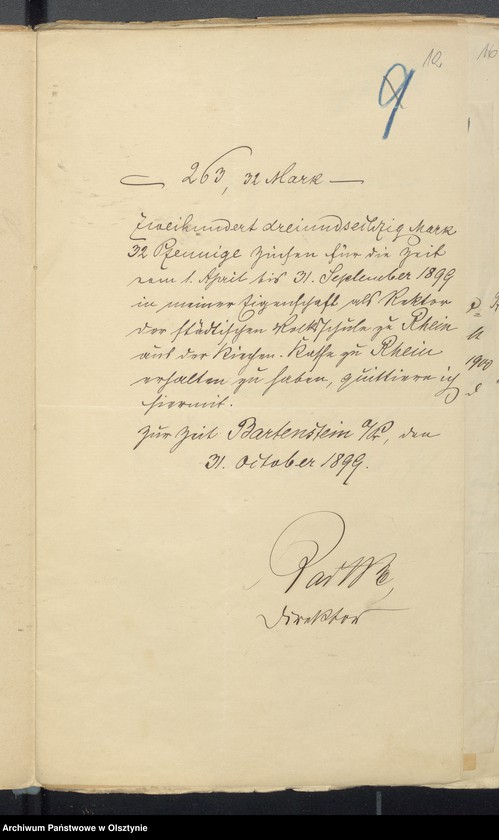 12
16
9
263, 32 Mark
Zweihundert dreiundsechzig Mark
32 Pfennige Zinsen für die Zeit
vom 1. April bis 31. September 1899
in meiner Eigenschaft als Rektor
der städtischen Volksschule zu Rhein
aus der Kirchen-Kasse zu Rhein
erhalten zu haben, quittiere ich
hiermit.
Zur Zeit Bartenstein O/Pr, den
31. October 1899.
Direktor
1900
Archiwum Państwowe w Olsztynie